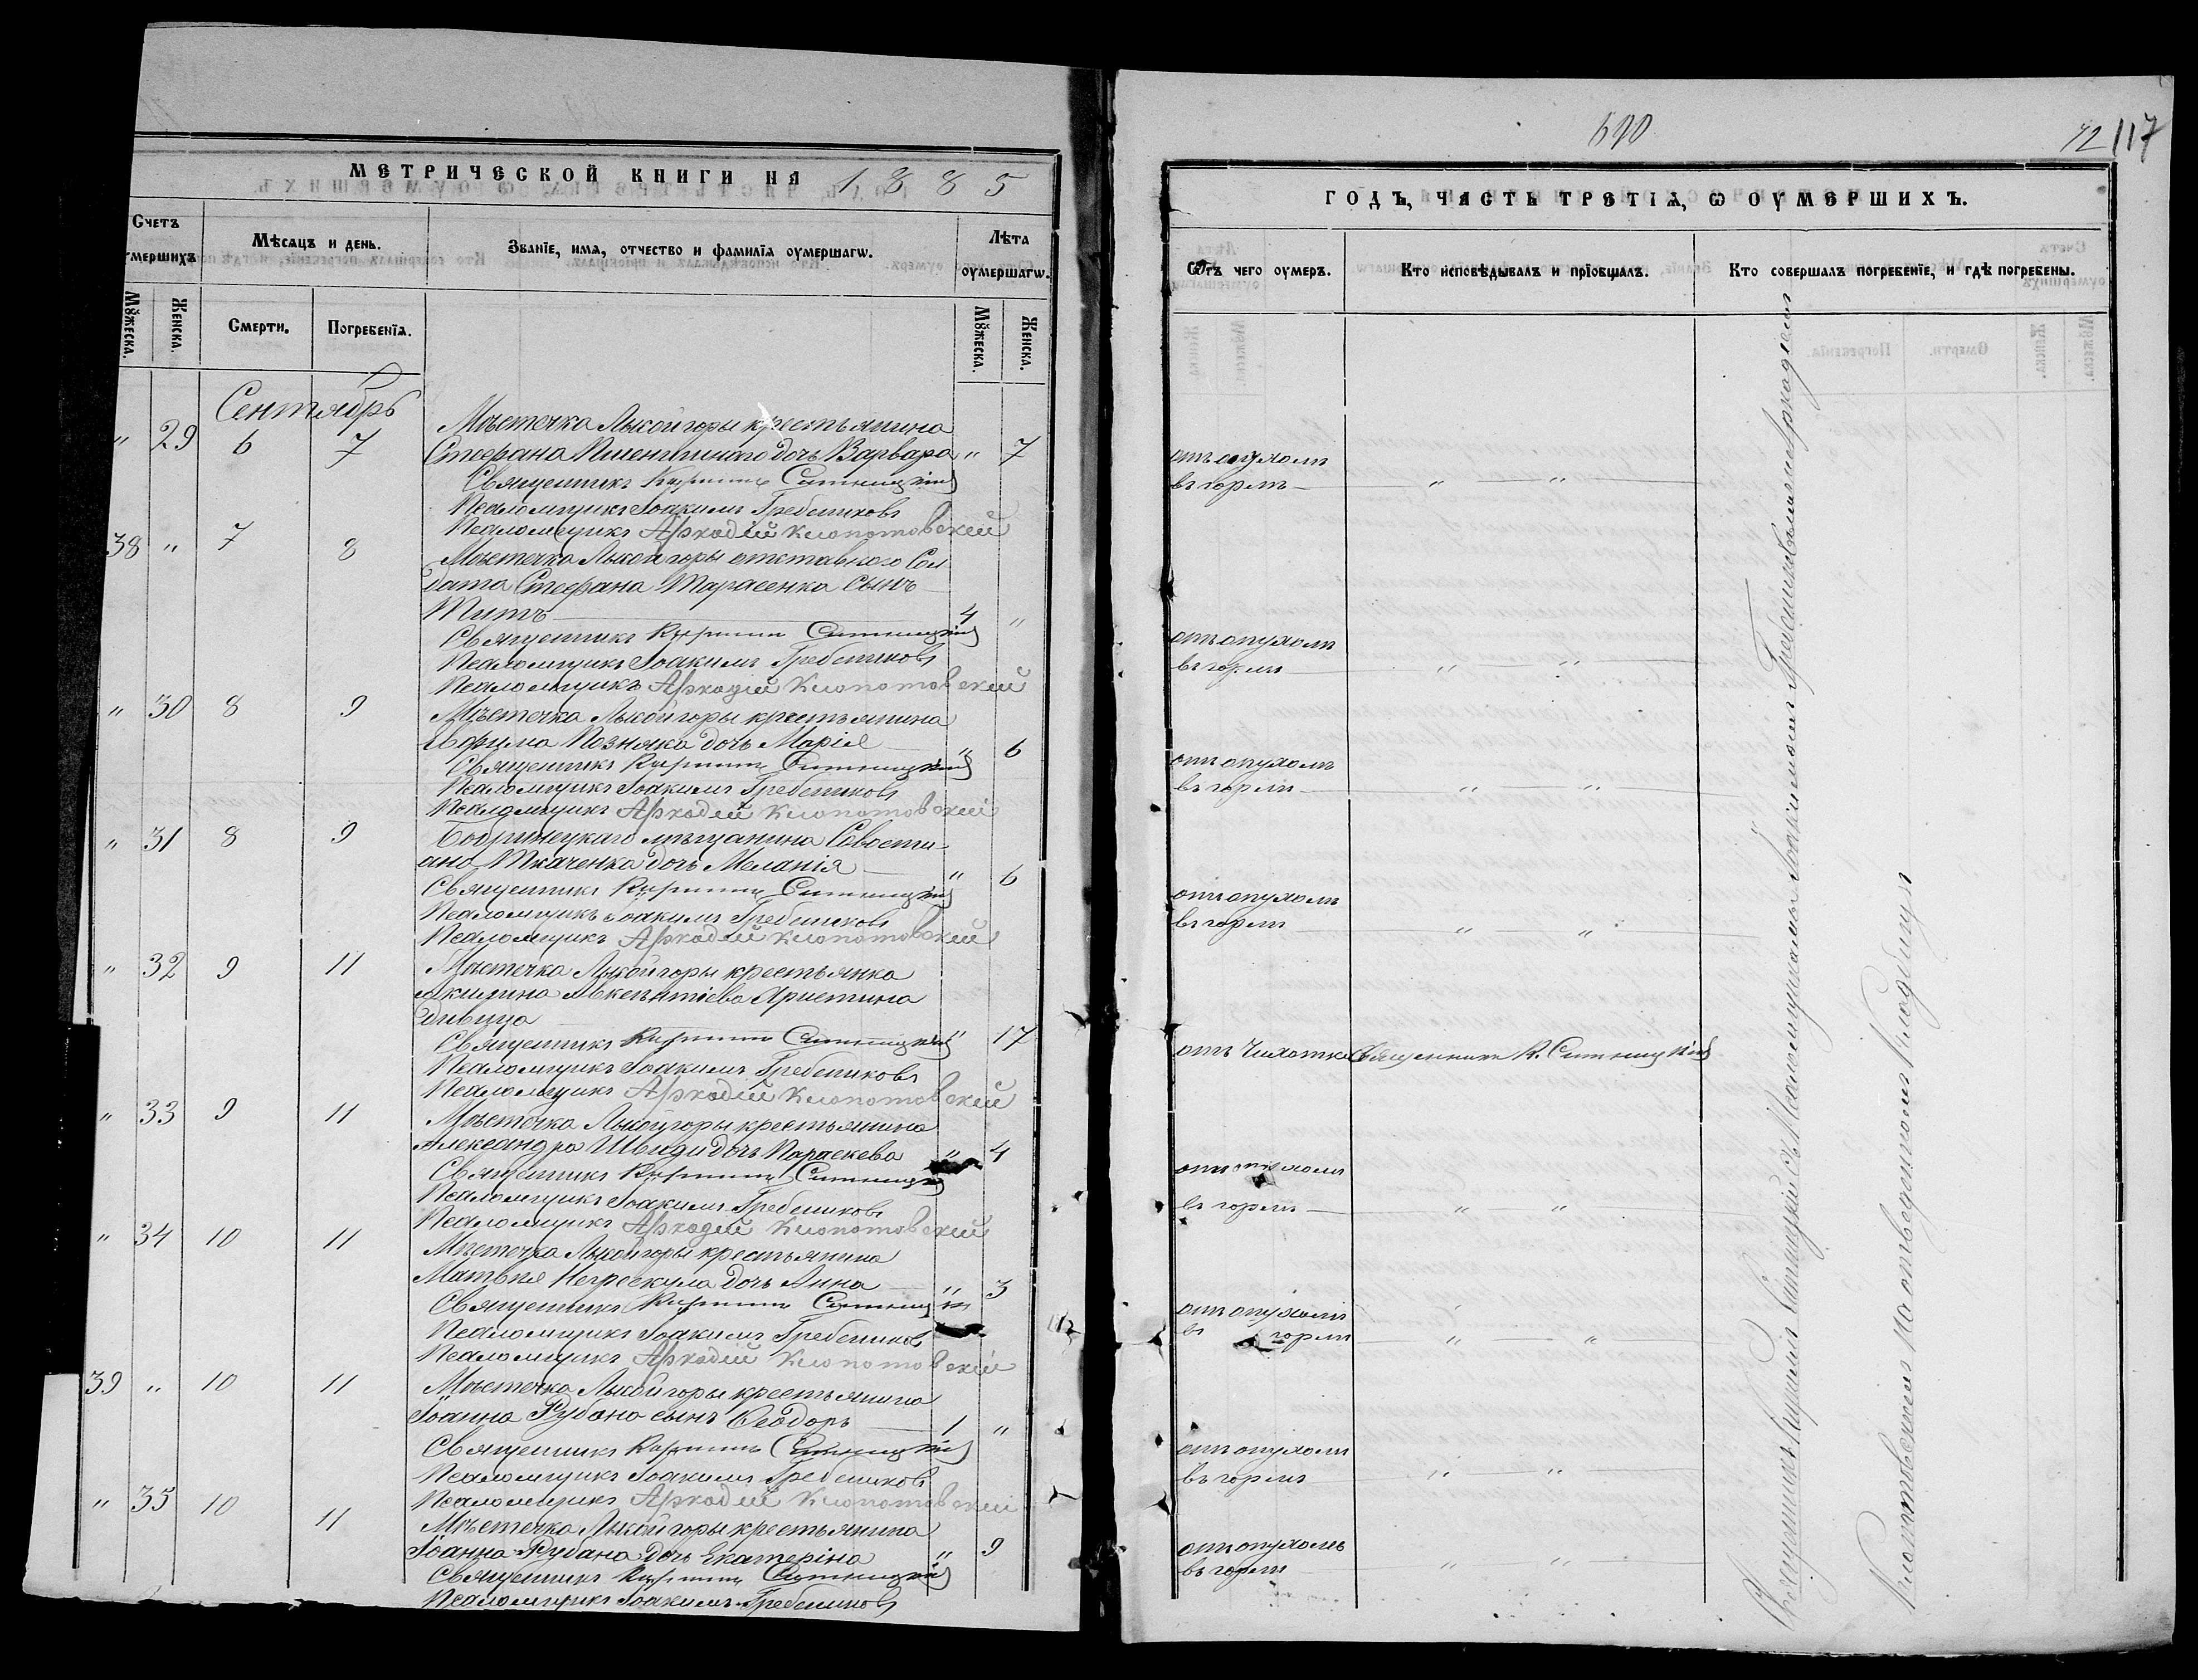 МЕТРИЧЕСКОЙ КНИГИ НА 1885
Счетъ умершихъ
Мѣсяцъ и день.
Званіе, имя, отчество и фамилія оумершагѡ.
Лѣта оумершагѡ.
Мꙋжеска. Женска. Смерти. Погребенія. Мꙋжеска. Женска.
Сентябрь
" 29 6 7 Мѣстечка Лысой горы крестьянина
Стефана дочь Варвара " 7
Священникъ Кириллъ Ситницкій
Псаломщикъ Іоакимъ Гребенниковъ
Псаломщикъ Аркадій Клопотовскій
38 " 7 8 Мѣстечка Лысой горы отставного Сол
дата Стефана Тарасенка Сынъ
Титъ 4 "
Священникъ Кириллъ Ситницкій
Псаломщикъ Іоакимъ Гребенниковъ
Псаломщикъ Аркадій Клопотовскій
" 30 8 9 Мѣстечка Лысой горы крестьянина
Евфима Позняка дочь Марія " 6
Священникъ Кириллъ Ситницкій
Псаломщикъ Іоакимъ Гребенниковъ
Псаломщикъ Аркадій Клопотовскій
" 31 8 9 Бобринецкаго мѣщанина Севасти-
ана Ткаченка дочь Меланія " 6
Священникъ Кириллъ Ситницкій
Псаломщикъ Іоакимъ Гребенниковъ
Псаломщикъ Аркадій Клопотовскій
" 32 9 11 Мѣстечка Лысой горы крестьянка
Акилина Авксентіева
дѣвица " 17
Священникъ Кириллъ Ситницкій
Псаломщикъ Іоакимъ Гребенниковъ
Псаломщикъ Аркадій Клопотовскій
" 33 9 11 Мѣстечка Лысой горы крестьянина
Александра Швиди дочь Параскева " 4
Священникъ Кириллъ Ситницкій
Псаломщикъ Іоакимъ Гребенниковъ
Псаломщикъ Аркадій Клопотовскій
" 34 10 11 Мѣстечка Лысой горы крестьянина
Матвѣя Негрескула дочь Анна " 3
Священникъ Кириллъ Ситницкій
Псаломщикъ Іоакимъ Гребенниковъ
Псаломщикъ Аркадій Клопотовскій
39 " 10 11 Мѣстечка Лысой горы крестьянина
Іоанна Рубана сынъ Ѳеодоръ 1 "
Священникъ Кириллъ Ситницкій
Псаломщикъ Іоакимъ Гребенниковъ
Псаломщикъ Аркадій Клопотовскій
" 35 10 11 Мѣстечка Лысой горы крестьянина
Іоанна Рубана дочь Екатеріна " 9
Священникъ Кириллъ Ситницкій
Псаломщикъ Іоакимъ Гребенниковъ
690
72 117
ГОДЪ, ЧАСТЬ ТРЕТІЯ, Ѡ ОУМЕРШИХЪ.
Ѿъ чего оумеръ.
Кто исповѣдывалъ и пріобщалъ.
Кто совершалъ погребеніе, и гдѣ погребены.
отъ опухоли
въ горлѣ " "
отъ опухоли
въ горлѣ " "
отъ опухоли
въ горлѣ " "
отъ опухоли
въ горлѣ " "
отъ Чахотки Священникъ К. Ситницкій
отъ опухоли
въ горлѣ " "
отъ опухоли
въ горлѣ " "
отъ опухоли
въ горлѣ " "
отъ опухоли
въ горлѣ " "
Священникъ Кириллъ Ситницкій съ Псаломщиками Іоакимомъ Гребенниковымъ и Аркадіемъ
Клопотовскимъ на отведенномъ кладбищѣ